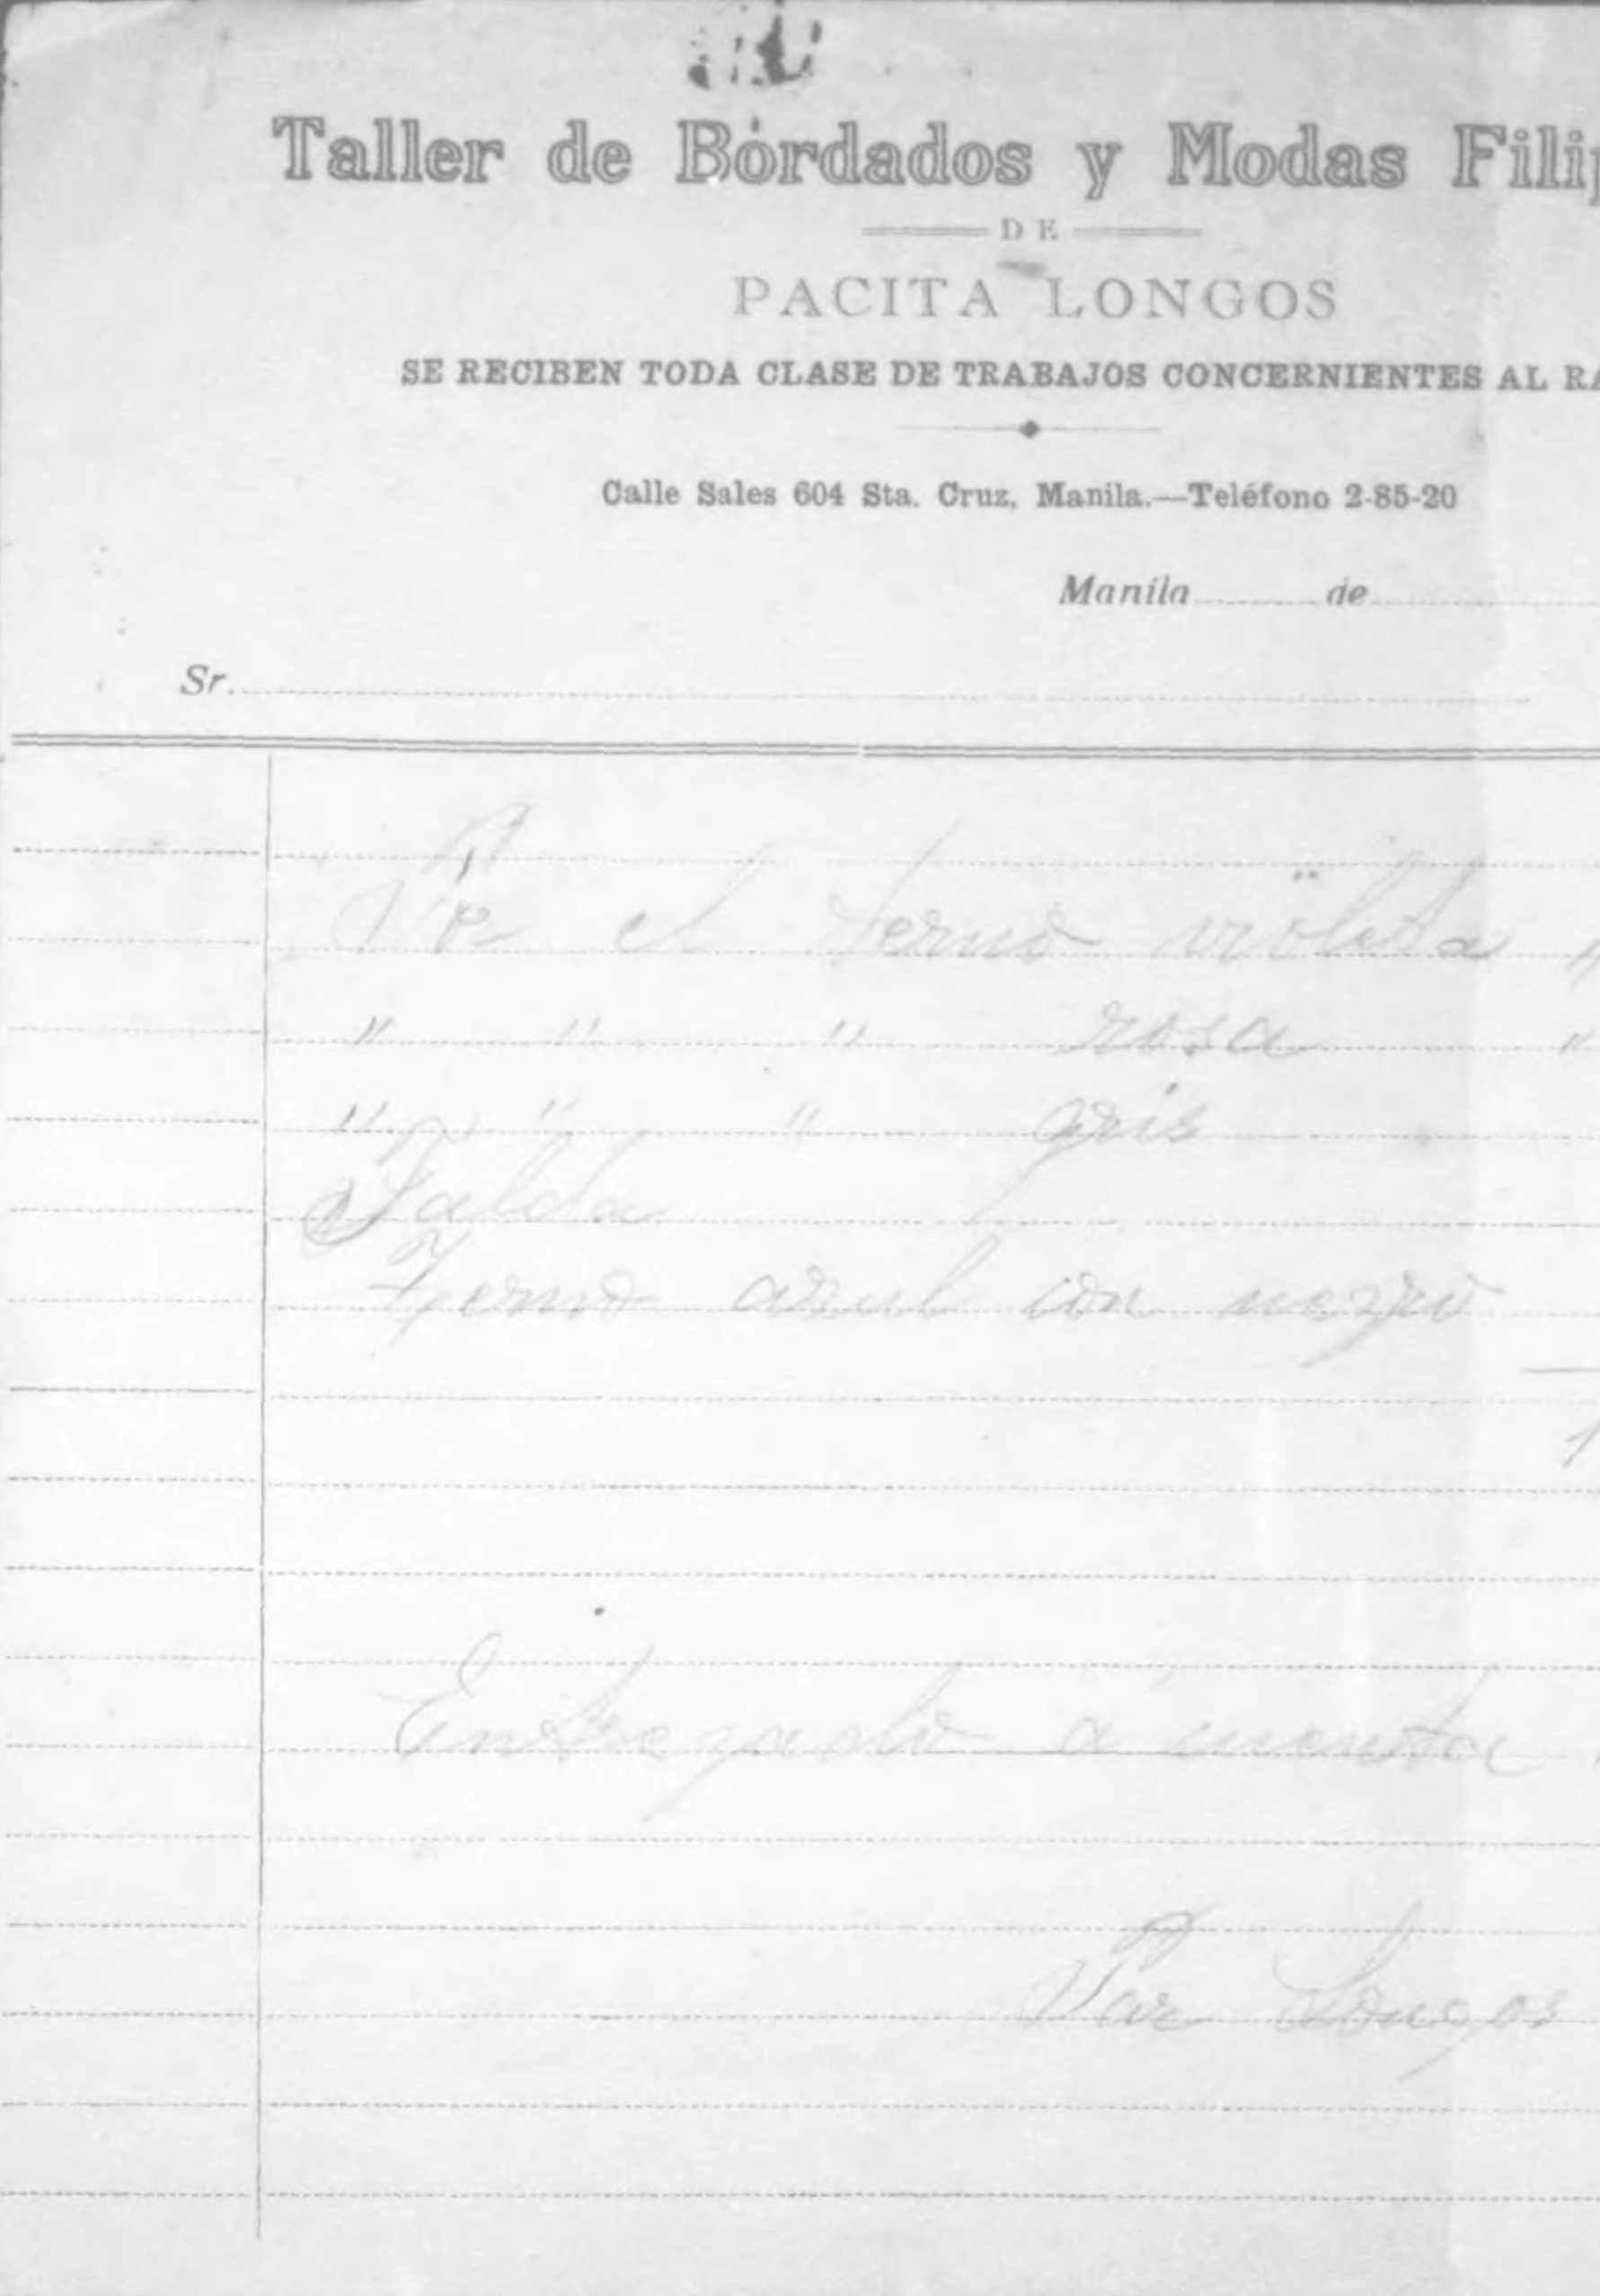 Taller de Bordados y Modas Filip
DE
PACITA LONGOS
SE RECIBEN TODA CLASE DE TRABAJOS CONCERNIENTES AL RA
Calle Sales 604 Sta. Cruz, Manila.—Teléfono 2-85-20
Manila ............ de
Sr.
Por el terno violeta "
" " " rosa "
" " " gris
Falda
Terno azul con negro
1
Entregado á cuenta
Paz Longos